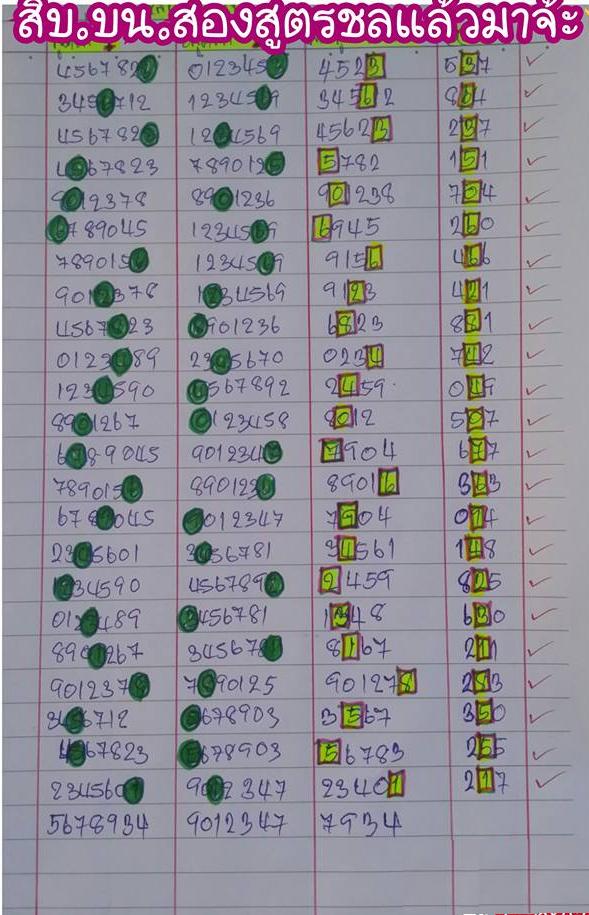 สิบ.บน.สองสูตรชลแล้วมาจ้ะ
456782 012345 4523 537
345 712 12345 9 34562 804
456782 12 4569 45623 237
4 67823 789012 5782 151
9 12378 89 1236 901238 704
789045 12345 9 6945 260
789015 12345 9 9156 466
901 378 1 34569 9123 421
4567 23 901236 6823 881
0123 89 23 5670 0234 742
123 590 567892 2459 049
89 1267 123458 8012 507
6 89045 901234 7904 677
789015 890123 89016 363
678 045 012347 7904 074
23 5601 3 56781 34561 148
34590 456789 2459 825
01 489 456781 1348 630
89 1267 345678 8167 211
901237 7 90125 901278 283
34 6712 678903 3567 350
4 67823 678903 56783 255
234560 90 2347 23401 217
5678934 9012347 7934